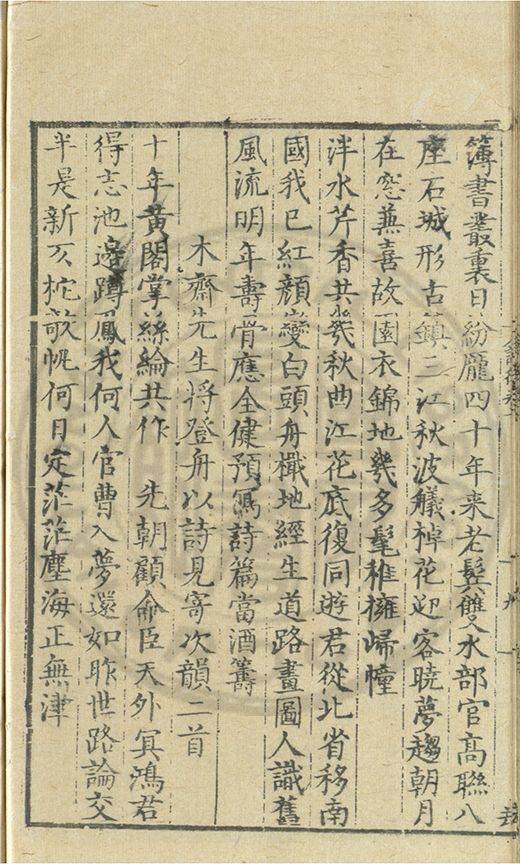 簿書叢裏日紛龐四十年来老鬂雙水部官高聯八
座石城形古鎮三江秋波艤棹花迎客暁夢趨朝月
在窓兼喜故園衣錦地幾多髦稚擁歸幢
泮水芹香共幾秋曲江花底復同遊君從北省移南
國我已紅顔變白頭舟檝地經生道路畫圖人識舊
風流明年壽骨應全健預寫詩篇當酒籌
木齋先生将登舟以詩見寄次韻二首
十年黄閣掌絲綸共作 先朝顧命臣天外冥鴻君
得志池邊蹲鳳我何人官曹入夢還如昨世路論交
半是新又柁敧帆何日定茫茫塵海正無津